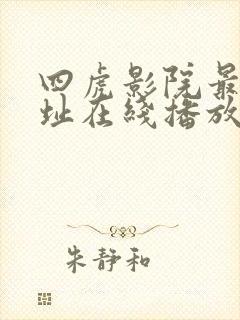 四虎影院最
址在线播放
朱静和